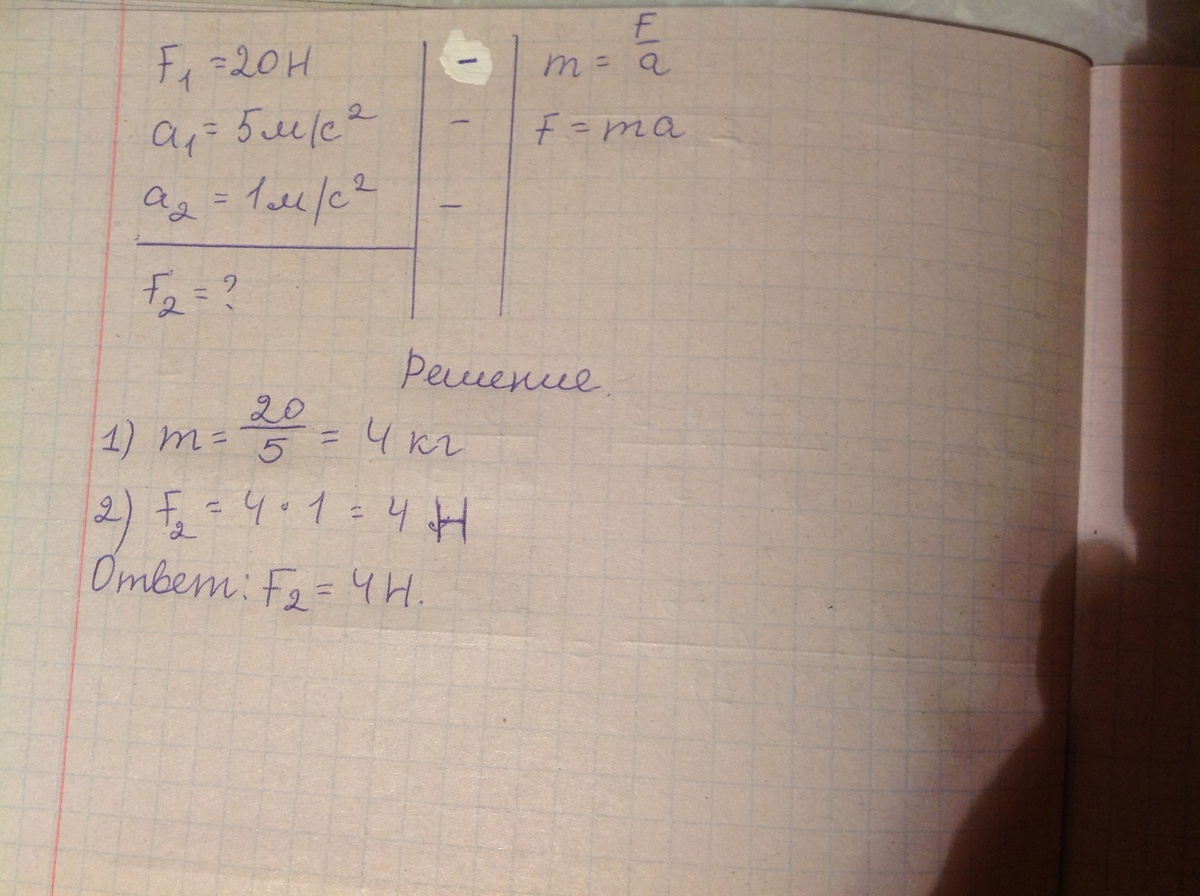 F₁ = 20 Н - m = F/a
a₁ = 5 м/с² - F = ma
a₂ = 1 м/с² -
F₂ = ?
Решение.
1) m = 20/5 = 4 кг
2) F₂ = 4 · 1 = 4 Н
Ответ: F₂ = 4 Н.